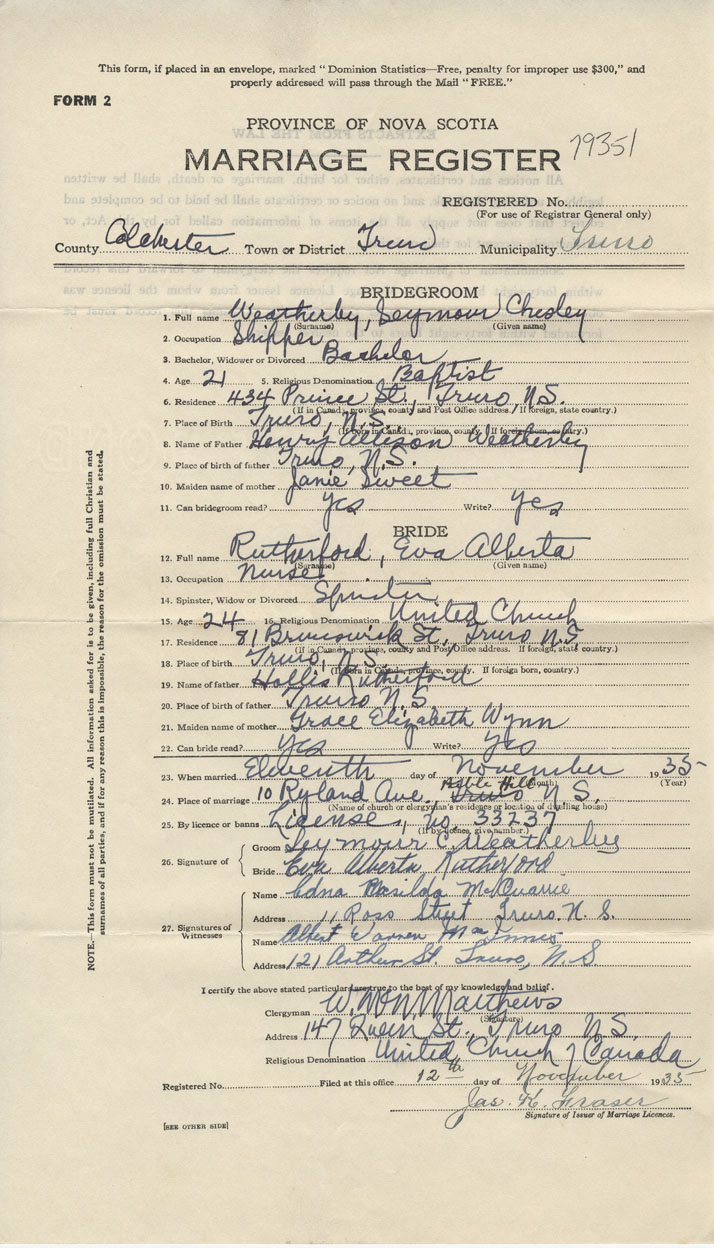 This form, if placed in an envelope, marked "Dominion Statistics—Free, penalty for improper use $300," and
properly addressed will pass through the Mail "FREE."
FORM 2
PROVINCE OF NOVA SCOTIA
MARRIAGE REGISTER 19351
REGISTERED No.
(For use of Registrar General only)
County Colchester Town or District Truro Municipality Truro
BRIDEGROOM
1. Full name Weatherby, Seymour Chesley
(Surname) (Given name)
2. Occupation Shipper
3. Bachelor, Widower or Divorced Bachelor
4. Age 21 5. Religious Denomination Baptist
6. Residence 434 Prince St., Truro, N.S.
(If in Canada, province, county and Post Office address. If foreign, state country.)
7. Place of Birth Truro, N.S.
(If born in Canada, province, county. If foreign born, country.)
8. Name of Father Henry Allison Weatherby
9. Place of birth of father Truro, N.S.
10. Maiden name of mother Janie Sweet
11. Can bridegroom read? Yes Write? Yes
BRIDE
12. Full name Rutherford, Eva Alberta
(Surname) (Given name)
13. Occupation Nurse
14. Spinster, Widow or Divorced Spinster
15. Age 24 16. Religious Denomination United Church
17. Residence 81 Brunswick St., Truro N.S.
(If in Canada, province, county and Post Office address. If foreign, state country.)
18. Place of birth Truro, N.S.
(If born in Canada, province, county. If foreign born, country.)
19. Name of father Hollis Rutherford
20. Place of birth of father Truro N.S.
21. Maiden name of mother Grace Elizabeth Wynn
22. Can bride read? Yes Write? Yes
23. When married Eleventh day of November 1935
(Month) (Year)
24. Place of marriage 10 Ryland Ave., Bible Hill Truro N.S.
(Name of church or clergyman's residence or location of dwelling house)
25. By licence or banns License, No 33237
(If by licence, give number.)
26. Signature of
Groom Seymour C Weatherby
Bride Eva Alberta Rutherford
27. Signatures of Witnesses
Name Edna McQuarrie
Address 11 Ross Street Truro. N. S.
Name Albert Warren MacInnes
Address 121 Arthur St. Truro, N.S
I certify the above stated particulars are true to the best of my knowledge and belief.
Clergyman Matthews
(Signature)
Address 147 Queen St., Truro N.S.
Religious Denomination United Church of Canada
Registered No. Filed at this office 12th day of November 1935
Jas. K. Fraser
Signature of Issuer of Marriage Licences.
[SEE OTHER SIDE]
NOTE.—This form must not be mutilated. All information asked for is to be given, including full Christian and
surnames of all parties, and if for any reason this is impossible, the reason for the omission must be stated.